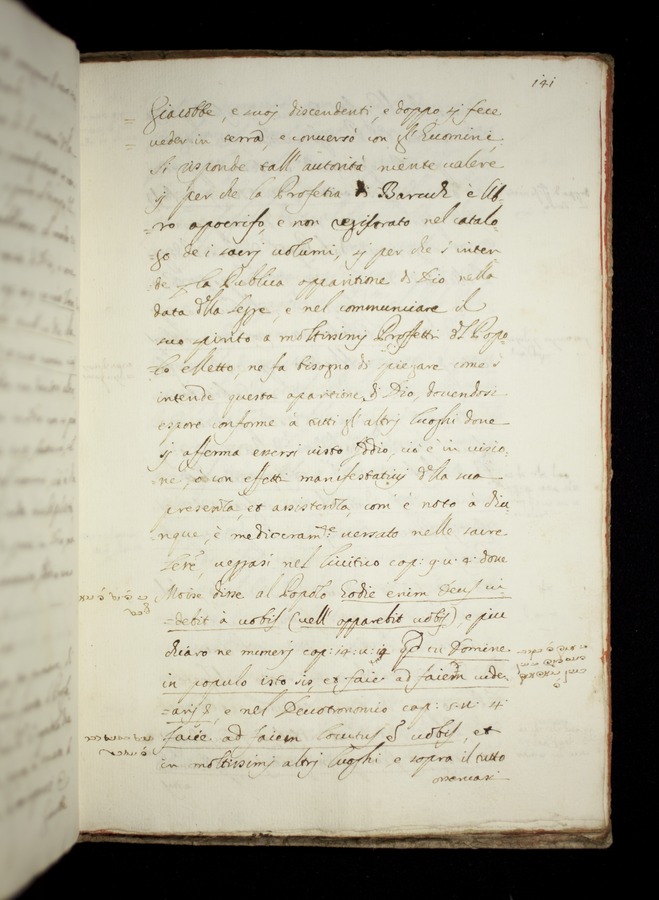 141
Giacobbe, e suoj discendenti, e doppo si fece
veder in terra, e conversò con gl'Huomini,
si risponde tall'autorità niente valere
sj per che la Profetia di Baruch è lib-
=ro apocrifo, e non registrato nel catalo-
=go de i sacrj volumi, sj per che s'inten
de la Publica apparitione di Dio nella
data della legge e nel communicare il
suo spirito a moltissimj Proffetti del Popo
=lo elletto, ne fa bisogno di spiegare come s'
intende questa aparitione di Dio, dovendosi
esporе conforme à tutti gl'altrj luoghi dove
si afferma essersi visto Iddio, cio è in visio,
=ne, ò con effetti manifestativj della sua
presenza, et assistenza, com' è noto à chiu
nque, è mediocram.te versato nelle sacre
lere, veggasi nel Levitico cap: 9 v: 4: dove
Moise disse al Popolo hodie enim Deus vi
=debit à vobis (vell' apparebit vobis) e piu
chiaro ne numerj cap: 14: v: 14 qd tu Domine
in populo isto sis et facie ad faciem vide-
=aris, e nel Deuotronomio cap: 5: v: 4
facie ad faciem locutus est vobis, et
in moltissimj altrj luoghi e sopra il tutto
osservasi